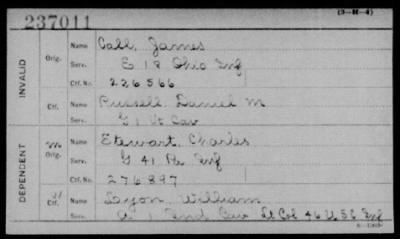 (3—H—4)
237011
INVALID
Orig.
Name Call, James
Serv. E 18 Ohio Inf
Ctf. No. 226566
Ctf.
Name Russell, Daniel M
Serv. G 1 Vt Cav
DEPENDENT
m
Orig.
Name Stewart, Charles
Serv. G 41 Inf
Ctf. No. 276897
Ctf.
Name Lyon, William
Serv. 1 Ind Cav Lt Col 46 U S C Inf